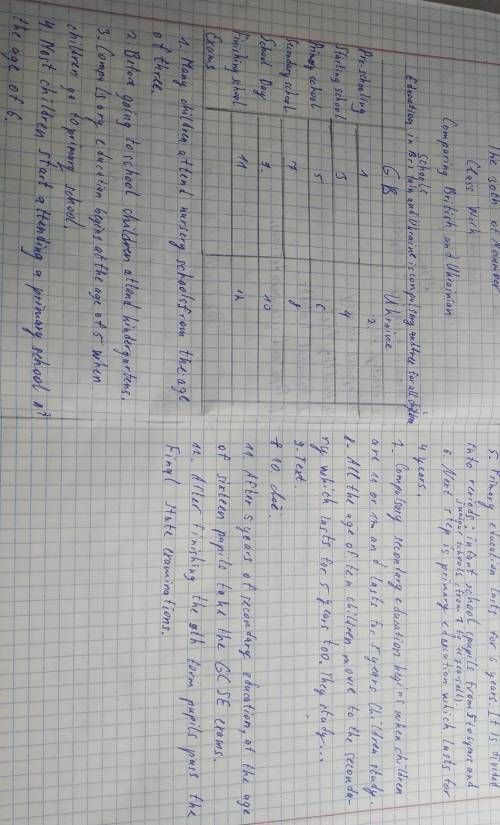 The 30th of November
Class Work
Comparing British and Ukrainian
Schools
Education in Britain and Ukraine is compulsory and free for all children
GB Ukraine
Pre-schooling 1 2.
Starting school 3 4
Primary school 5 6
Secondary school 7 8
School Day 9. 10
Finishing school 11 12
Exams
1. Many children attend nursery schools from the age
of three.
2. Before going to school children attend kindergartens.
3. Compulsary education begins at the age of 5 when
children go to primary school.
4. Most children start attending a primary school at
the age of 6.
5. Primary education lasts for 6 years. It is divided
into periods: infant school (pupils from 5 to 6 years and
junior schools (from 7 to 11 years old).
6 Next step is primary education which lasts for
4 years.
7. Compulsory secondary education begins when children
are 11 or 12 and lasts for 5 years. Children study.
8. All the age of ten children move to the seconda-
ry which lasts for 5 years too. They study...
9. Text.
10
11. After 5 years of secondary education, at the age
of sixteen pupils take the GCSE exams.
12. After finishing the term pupils pass the
Final state examinations.